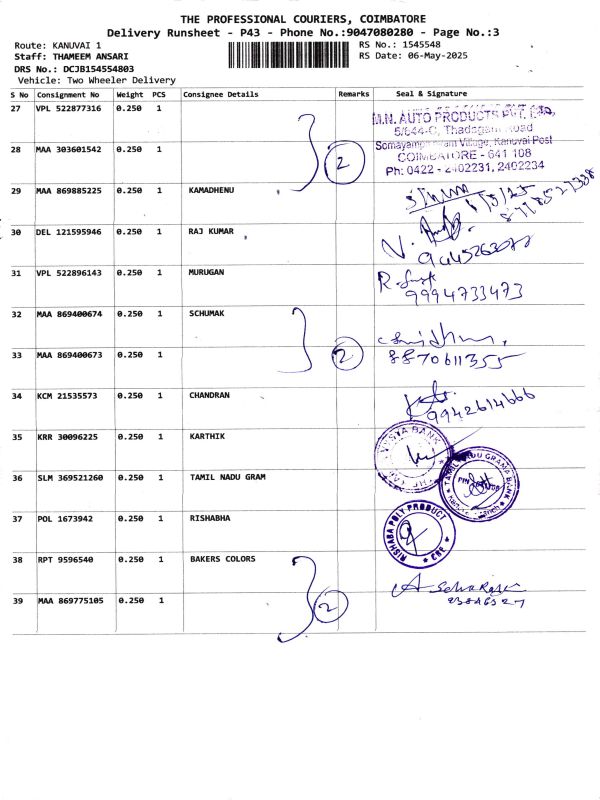 THE PROFESSIONAL COURIERS, COIMBATORE
Delivery Runsheet - P43 - Phone No.:9047080280 - Page No.:3
Route: KANUVAI 1
RS No.: 1545548
Staff: THAMEEM ANSARI
RS Date: 06-May-2025
DRS No.: DCJB154554803
Vehicle: Two Wheeler Delivery
S No Consignment No Weight PCS Consignee Details Remarks Seal & Signature
27 VPL 522877316 0.250 1
M.N. AUTO PRODUCTS PVT. LTD,
5/644-C, Thadagam Road
28 MAA 303601542 0.250 1 2
Somayampalayam Village, Kanuvai Post
COIMBATORE - 641 108
Ph: 0422 - 2402231, 2402234
29 MAA 869885225 0.250 1 KAMADHENU
30 DEL 121595946 0.250 1 RAJ KUMAR
31 VPL 522896143 0.250 1 MURUGAN
9994733473
32 MAA 869400674 0.250 1 SCHUMAK
33 MAA 869400673 0.250 1 2 8870611355
34 KCM 21535573 0.250 1 CHANDRAN
9942614666
35 KRR 30096225 0.250 1 KARTHIK
VYSYA BANK
36 SLM 369521260 0.250 1 TAMIL NADU GRAM
TAMIL NADU GRAMA BANK
37 POL 1673942 0.250 1 RISHABHA
RISHABA POLY PRODUCT
CBE
38 RPT 9596540 0.250 1 BAKERS COLORS
39 MAA 869775105 0.250 1 2